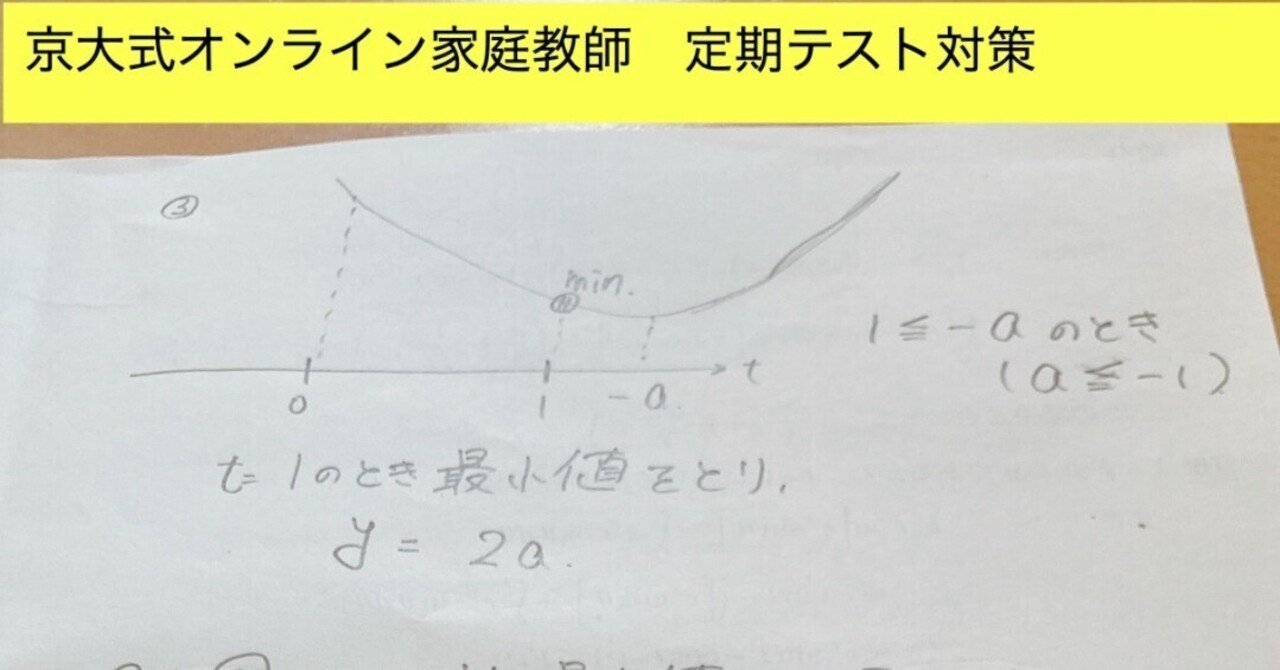 京大式オンライン家庭教師　定期テスト対策
③
min.
1 ≦ -a のとき
(a ≦ -1)
0 1 -a. t
t= 1のとき 最小値をとり,
y = 2a.